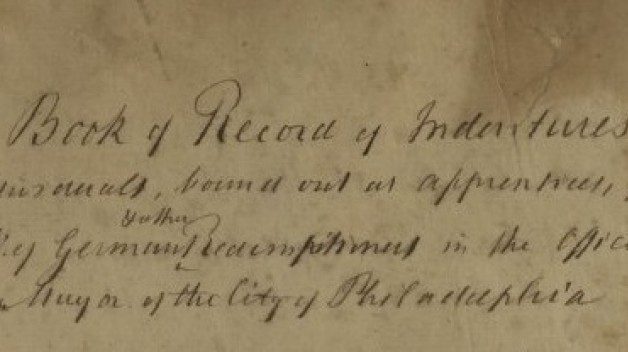 Book of Record of Indentures
bound out as apprentices,
of German & other Redemptioners in the Offic
Mayor of the City of Philadelphia